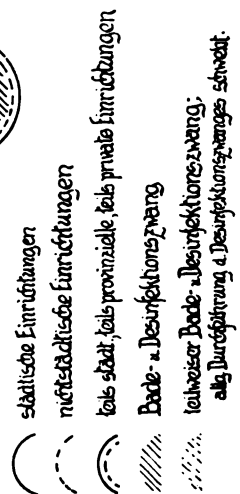 städtische Einrichtungen
nichtstädtische Einrichtungen
teils städt., teils provinzielle, teils private Einrichtungen
Bade- u. Desinfektionszwang
teilweiser Bade- u. Desinfektionszwang;
allg. Durchführung d. Desinfektionszwanges schwebt.